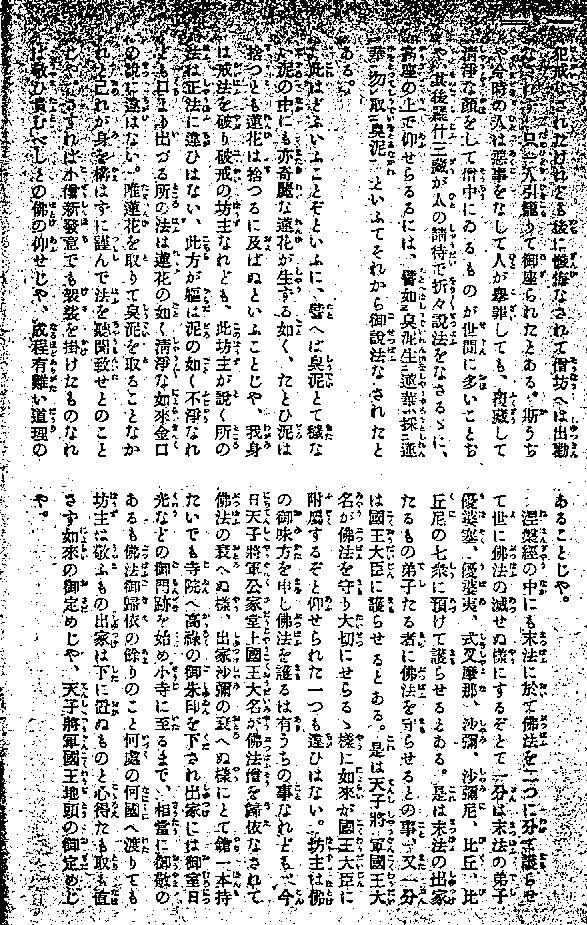 犯戒なされたけれども後に懺悔なされて僧坊へは出勤
なされずに只一人引籠りて御座られたとある。斯うち
や今時の人は惡事をなして人が擧罪しても、覆藏して
清淨な顔をして僧中にゐるものが世間に多いことぢ
や。其後羅什三藏が人の請待で折々說法をなさるゝに、
高座の上で仰せらるるには、譬如臭泥生蓮華採蓮
華勿取臭泥といふてそれから御說法なされたと
ある。
此はどふいふことぞといふに、譬へば臭泥とて穢な
い泥の中にも亦奇麗な蓮花が生する如く、たとひ泥は
捨つとも蓮花は捨つるに及ばぬといふことじや、我身
は戒法を破り破戒の坊主なれども、此坊主が說く所の
法は正法に違ひはない、此方が軀は泥の如く不淨なれ
ども口より出づる所の法は蓮花の如く清淨な如來金口
の說に違はない。唯蓮花を取りて臭泥を取ることなか
れとこれが身を構はすに謹んで法を聽聞致せとのこと
じや。すれば小僧新發意でも袈裟を掛けたものなれ
ば敬ひ貴むべしとの佛の仰せじや、成程有難い道理の
あることじや。
涅槃經の中にも末法に於て佛法を二つに分て護らせ
て世に佛法の滅せぬ樣にするぞとて一分は末法の弟子
優婆塞、優婆夷、式叉摩那、沙彌、沙彌尼、比丘、比
丘尼の七衆に預けて護らせるとある。是は末法の出家
たるもの弟子たる者に佛法を守らせるとの事、又一分
は國王大臣に護らせるとある。是は天子將軍國王大
名が佛法を守り大切にせらるゝ樣に如來が國王大臣に
附屬するぞと仰せられた一つも違ひはない。坊主は佛
の御味方を申し佛法を護るは有うちの事なれども、今
日天子將軍公家堂上國王大名が佛法僧を歸依なされて
佛法の衰へぬ樣、出家沙彌の衰へぬ樣にとて鎗一本持
たいでも寺院へ高祿の御朱印を下され出家には御室日
光などの御門跡を始め小寺に至るまで、相當に御敬の
あるも佛法御歸依の餘りのこと何處の何國へ渡りても
坊主に敬ふもの出家は下に置ぬものと心得たも取も直
さす如來の御定めじや、天子將軍國王地頭の御定めじ
や。